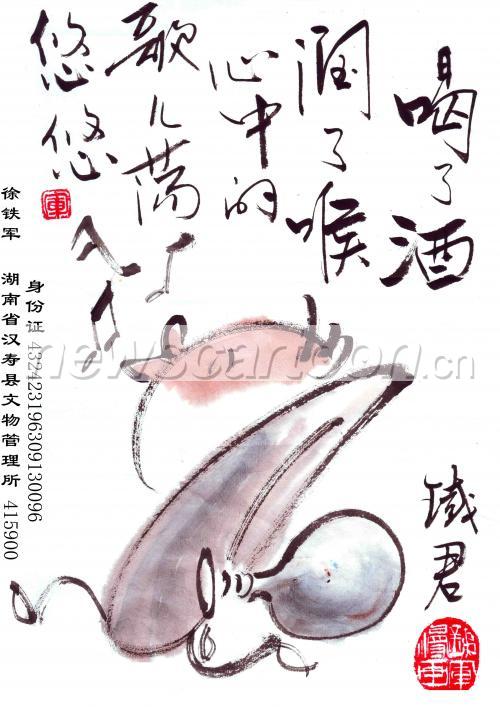 喝了酒
润了喉
心中的
歌儿荡
悠悠
newscartoon.cn
君
身份证 432423196309130096
徐铁军 湖南省汉寿县文物管理所 415900